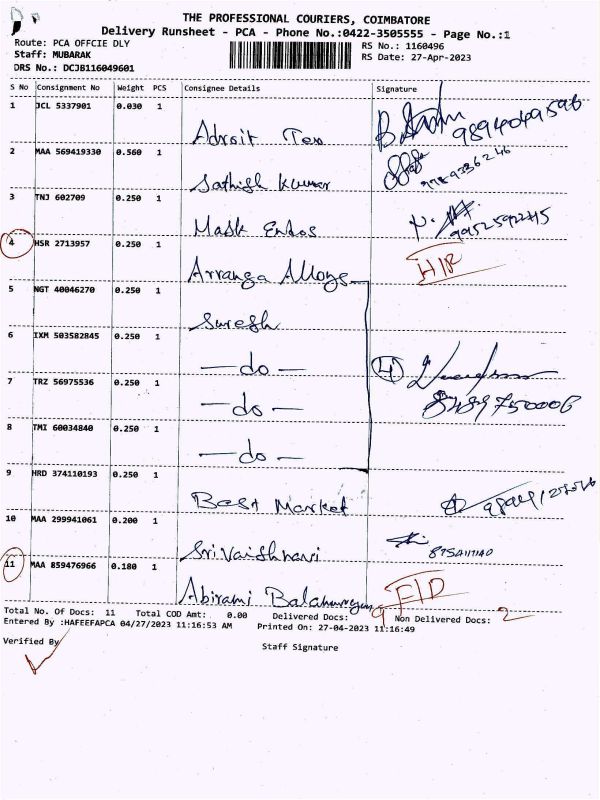 THE PROFESSIONAL COURIERS, COIMBATORE
Delivery Runsheet - PCA - Phone No.:0422-3505555 - Page No.:1
Route: PCA OFFCIE DLY
RS No.: 1160496
Staff: MUBARAK
RS Date: 27-Apr-2023
DRS No.: DCJB116049601
S No Consignment No Weight PCS Consignee Details Signature
1 JCL 5337901 0.030 1
Adroit Tex
2 MAA 569419330 0.560 1
Sathish Kumar
3 TNJ 602709 0.250 1
Mask Endos
4 HSR 2713957 0.250 1
Arranga Alloys
5 NGT 40046270 0.250 1
Suresh
6 IXM 503582845 0.250 1
— do — 4
7 TRZ 56975536 0.250 1
— do — 8489750006
8 TMI 60034840 0.250 1
— do —
9 HRD 374110193 0.250 1
Best Market
10 MAA 299941061 0.200 1
Sri Vaishnavi
11 MAA 859476966 0.180 1
Abirami
Total No. Of Docs: 11 Total COD Amt: 0.00 Delivered Docs: 9 Non Delivered Docs: 2
Entered By :HAFEEFAPCA 04/27/2023 11:16:53 AM Printed On: 27-04-2023 11:16:49
Verified By
Staff Signature